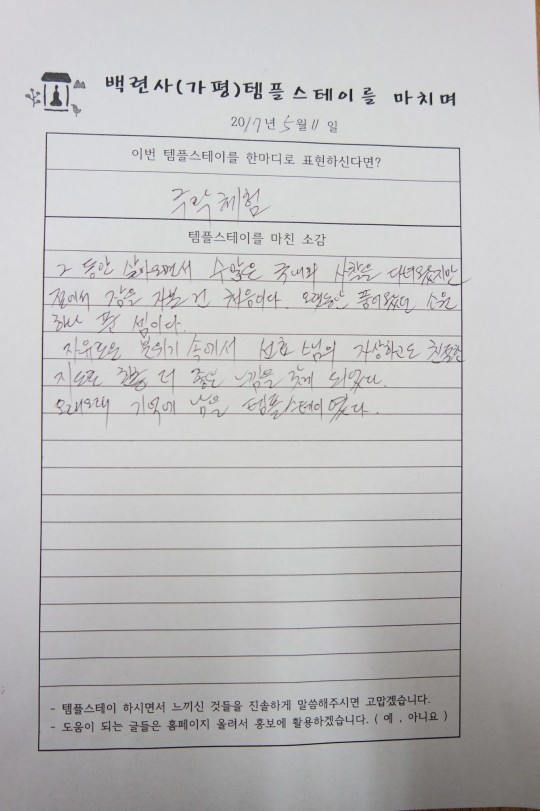 백련사(가평)템플스테이를 마치며
2017년 5월 11일
이번 템플스테이를 한마디로 표현하신다면?
주락체험
템플스테이를 마친 소감
그 동안 살아오면서 수많은 국내외 사찰을 다녀왔지만
절에서 잠을 자본 건 처음이다. 오랫동안 품어왔던 소원
하나 푼 셈이다.
자유로운 분위기 속에서 선효 스님의 자상하고도 친절한
지도로 한층 더 좋은 느낌을 갖게 되었다.
오래오래 기억에 남을 템플스테이였다.
- 템플스테이 하시면서 느끼신 것들을 진솔하게 말씀해주시면 고맙겠습니다.
- 도움이 되는 글들은 홈페이지 올려서 홍보에 활용하겠습니다. ( 예 , 아니요 )